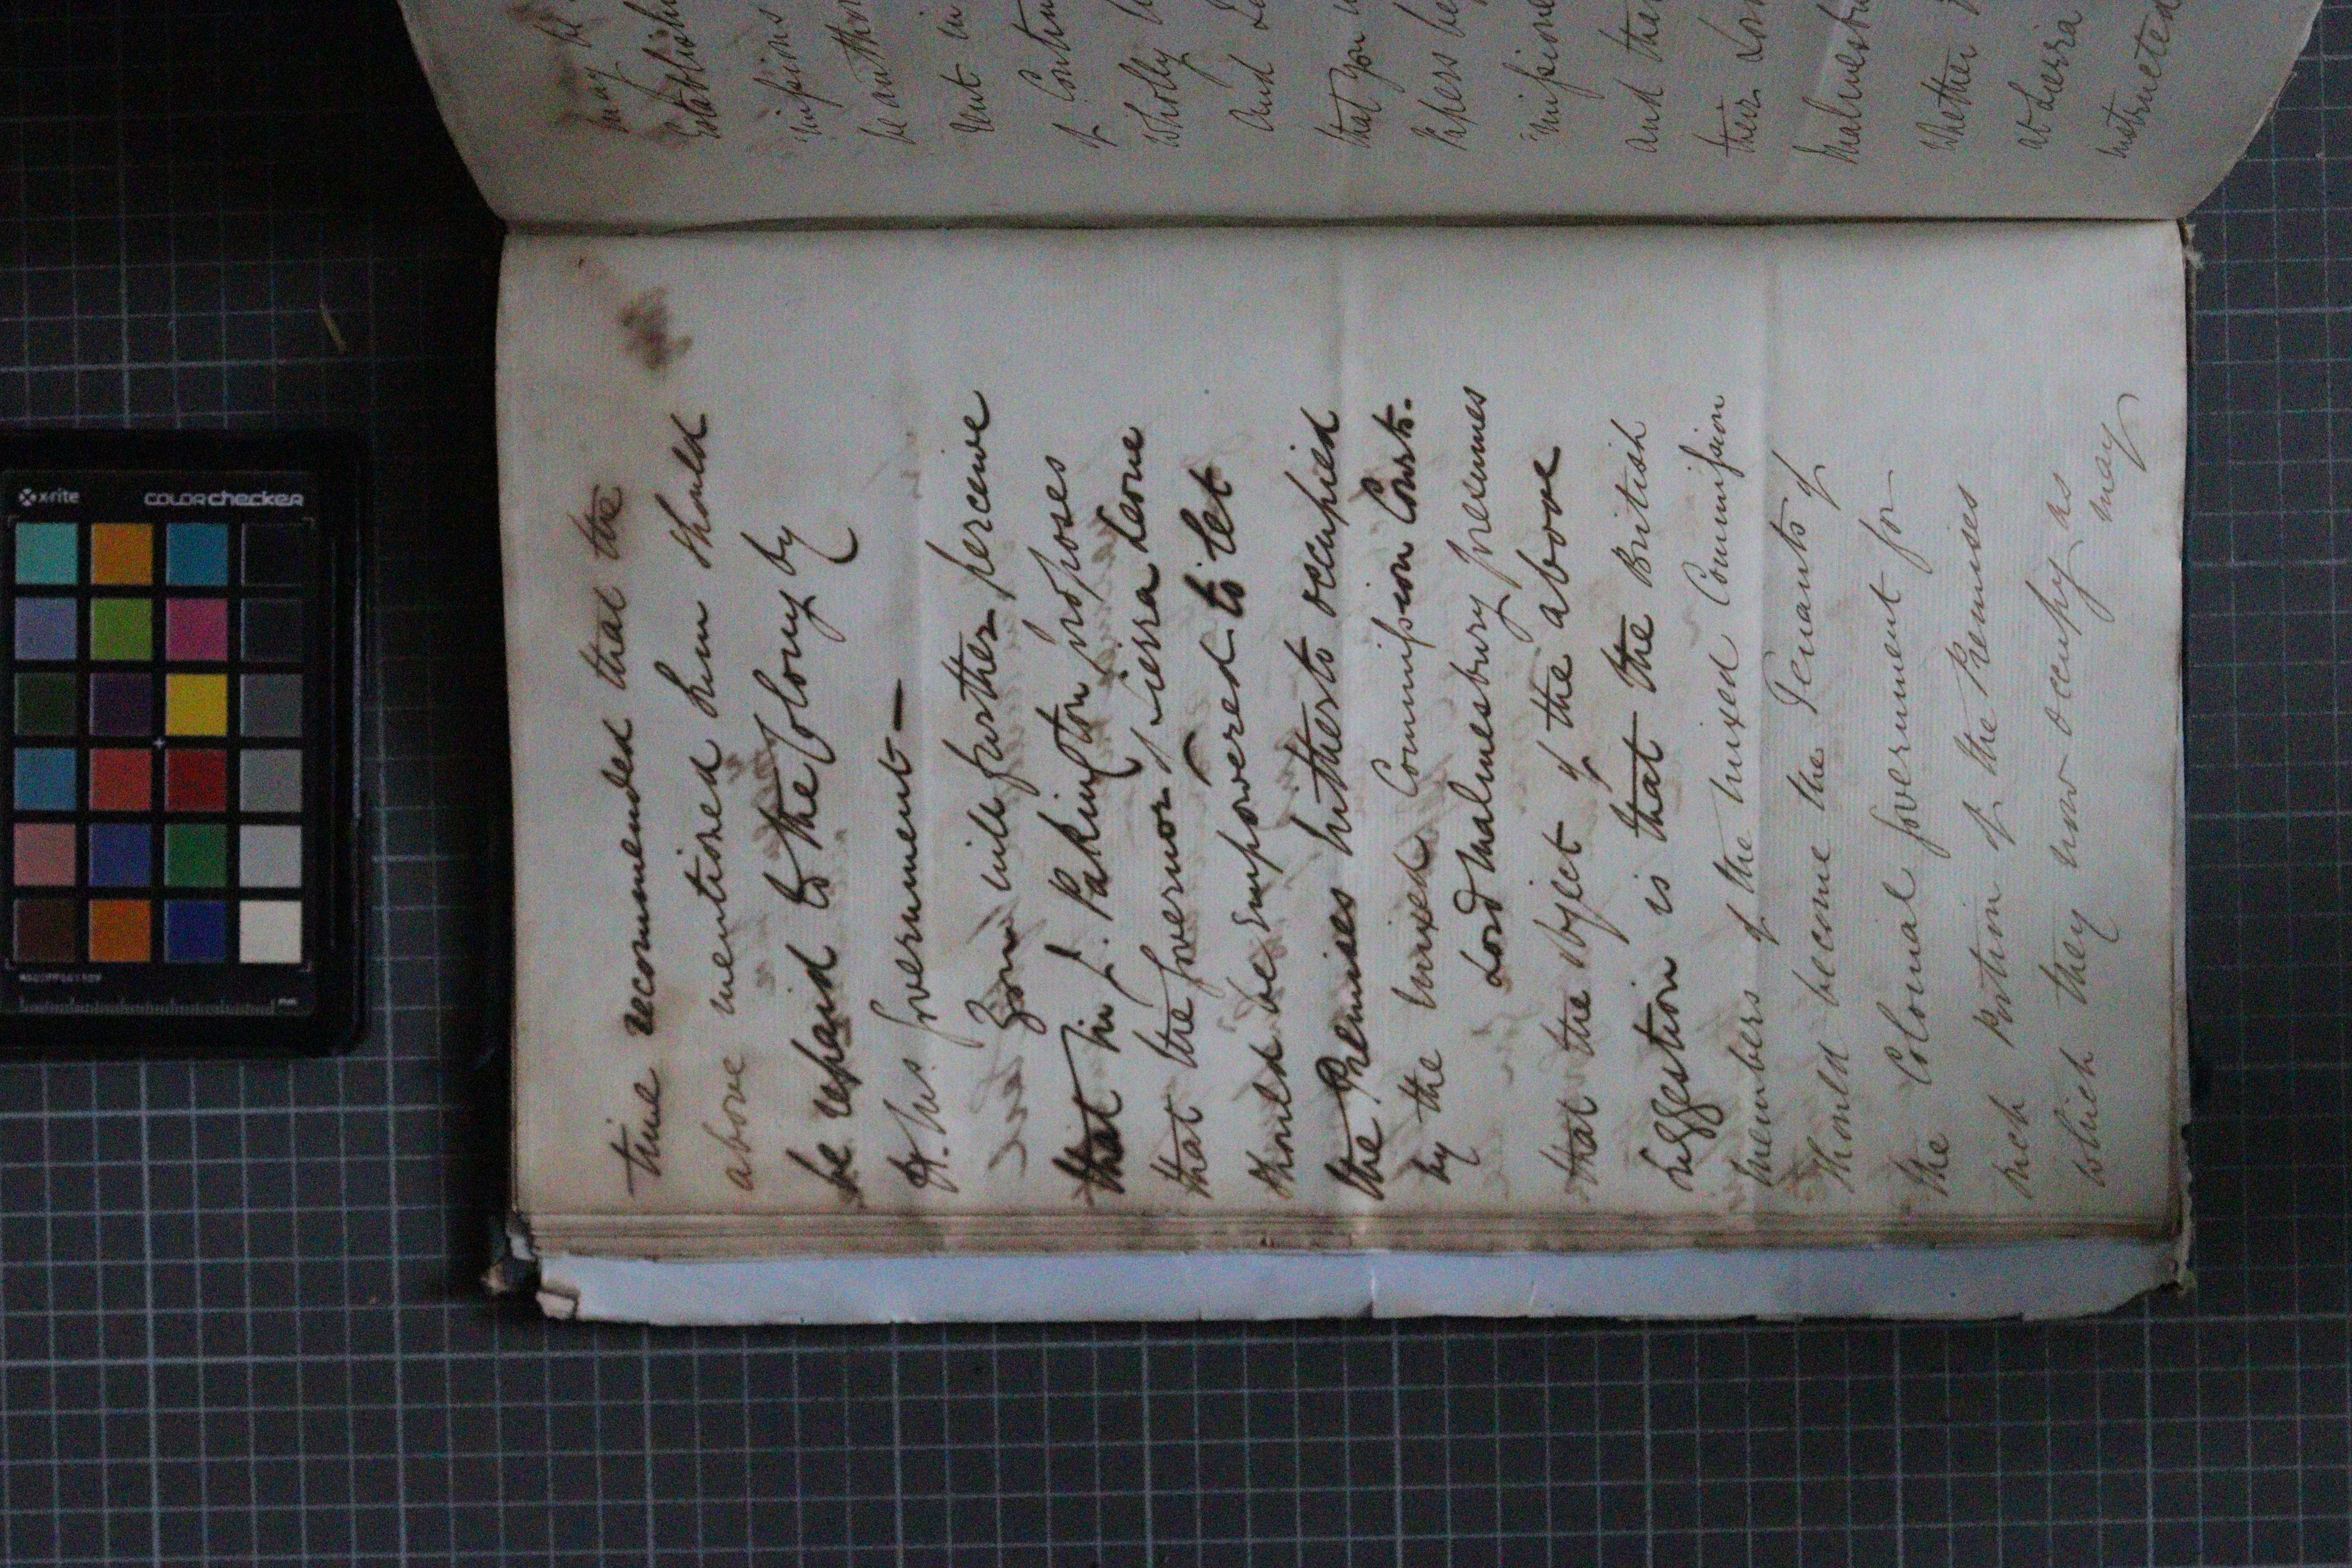 time recommended that the
above mentioned Sum should
be repaid to the Colony by
H. M's. Government —
You will further perceive
that Sir J. Pakington proposes
that the Governor of Sierra Leone
should be Empowered to let
the Premises hitherto occupied
by the Mixed Commission Courts.
Lord Malmesbury presumes
that the object of the above
suggestion is that the British
Members of the Mixed Commission
should become the Tenants of
the Colonial Government for
such Portion of the Premises
which they now occupy as
may
may be
Establishm
missions
be author
rent in
of Contin
wholly
And
that you
Papers be
missione
and that
their Lor
Malmesbu
Whether
at Sierra
instructed
x-rite
COLORchecker